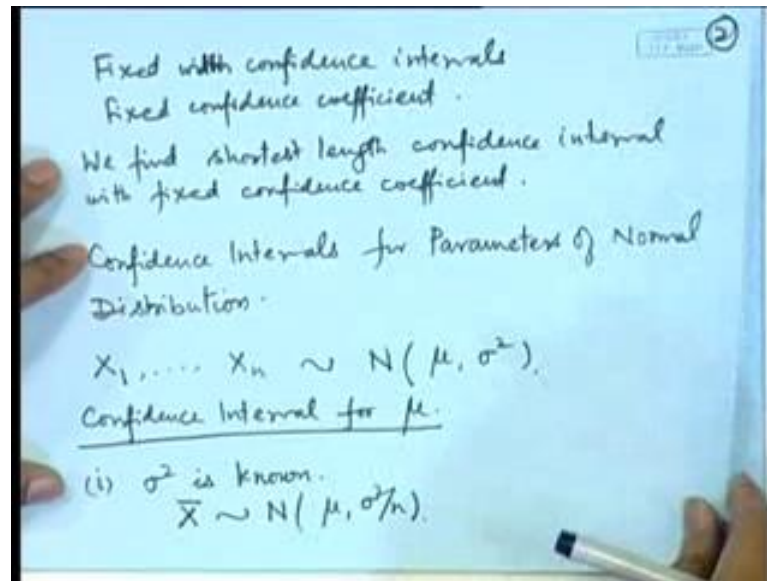 ②
Fixed width confidence intervals
fixed confidence coefficient.
We find shortest length confidence interval
with fixed confidence coefficient.
Confidence Intervals for Parameters of Normal
Distribution.
X₁, .... Xₙ ~ N( μ, σ²).
Confidence Interval for μ.
(i) σ² is known.
X̄ ~ N( μ, σ²/n).